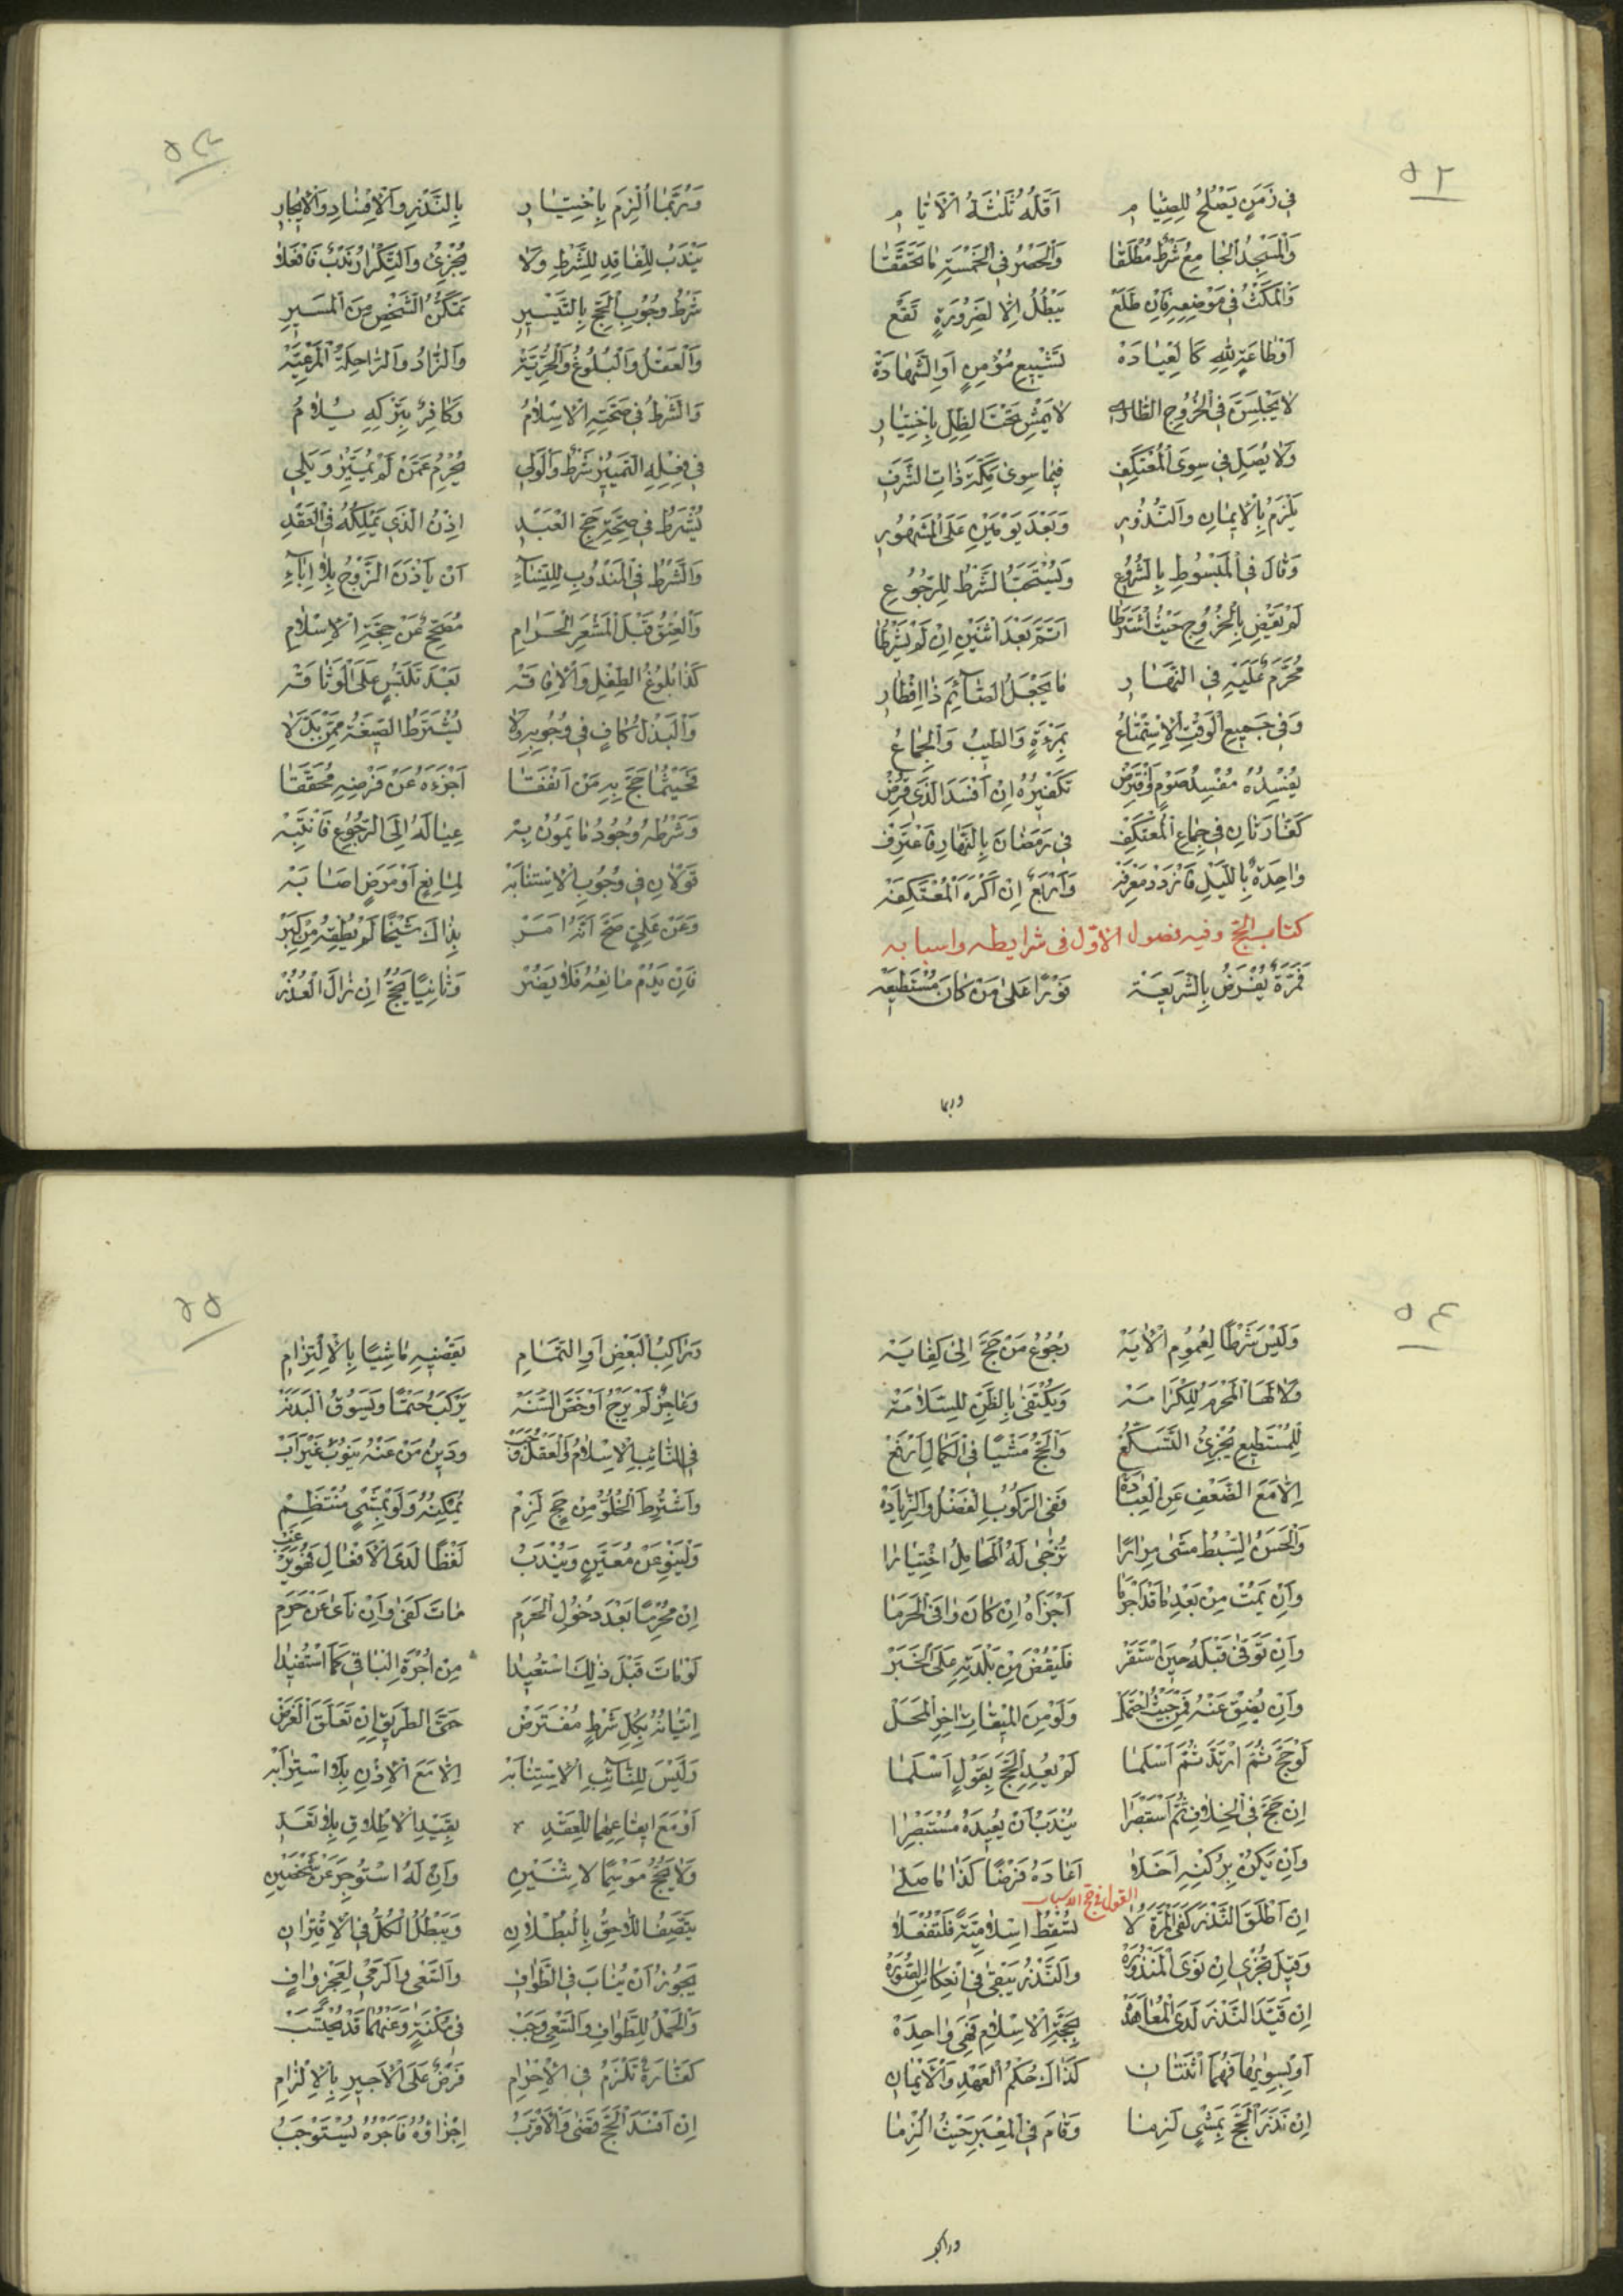 ٥٢
فِي زَمَنٍ يَصْلُحُ لِلصِّيَامِ أَقَلُّهُ ثَلٰثَةُ الْأَيَّامِ
وَالْمَسْجِدُ الْجَامِعُ شَرْطٌ مُطْلَقَا وَالْحَصْرُ فِي الْخَمْسَةِ مَا تَحَقَّقَا
وَالْمَكْثُ فِي مَوْضِعِهِ فَإِنْ طَلَعَ يَبْطُلُ إِلَّا لِضَرُورَةٍ تَقَعْ
أَوْ طَاعَةٍ لِلّٰهِ كَالْعِيَادَةْ تَشْيِيعِ مُؤْمِنٍ أَوِ الشَّهَادَةْ
لَا يَجْلِسَنَّ فِي الْخُرُوجِ الطَّارِي لَا يَمْشِ تَحْتَ الظِّلِّ بِاخْتِيَارِ
وَلَا يُصَلِّ فِي سِوَى الْمُعْتَكَفِ فِيمَا سِوَى مَكَّةَ ذَاتِ الشَّرَفِ
يَلْزَمُ بِالْأَيْمَانِ وَالنُّذُورِ وَبَعْدَ يَوْمَيْنِ عَلَى الْمَشْهُورِ
وَقَالَ فِي الْمَبْسُوطِ بِالشُّرُوعِ وَيُسْتَحَبُّ الشَّرْطُ لِلرُّجُوعِ
لَمْ يَقْضِ بِالْخُرُوجِ حَيْثُ اشْتَرَطَا أَتَمَّ بَعْدَ اثْنَيْنِ إِنْ لَمْ يَشْرُطَا
مُحَرَّمٌ عَلَيْهِ فِي النَّهَارِ مَا يَجْعَلُ الصَّائِمَ ذَا إِفْطَارِ
وَفِي جَمِيعِ الْوَقْتِ الِاسْتِمْتَاعُ بِمَرْءَةٍ وَالطِّيبُ وَالْجِمَاعُ
يُفْسِدُهُ مُفْسِدُ صَوْمٍ وَفُرِضْ تَكْفِيرُهُ إِنْ أَفْسَدَ الَّذِي فُرِضْ
كَفَّارَتَانِ فِي جِمَاعِ الْمُعْتَكِفْ فِي رَمَضَانَ بِالنَّهَارِ فَاعْتَرِفْ
وَاحِدَةٌ بِاللَّيْلِ فَازْدَدْ مَعْرِفَهْ وَأَرْبَعٌ إِنْ أَكْرَهَ الْمُعْتَكِفَهْ
كتاب الحج وفيه فصول الاول فى شرايطه واسبابه
فَمَرَّةً يُفْرَضُ بِالشَّرِيعَةْ فَوْرًا عَلَى مَنْ كَانَ مُسْتَطِيعَهْ
وربما
٥٣
وَرُبَّمَا أُلْزِمَ بِاخْتِيَارِ بِالنَّذْرِ وَالْإِفْسَادِ وَالْإِيجَارِ
يُنْدَبُ لِلْفَاقِدِ لِلشَّرْطِ وَلَا يُجْزِئُ وَالتَّكْرَارُ نَدْبٌ فَافْعَلَا
شَرْطُ وُجُوبِ الْحَجِّ بِالتَّيْسِيرِ تَمَكُّنُ الشَّخْصِ مِنَ الْمَسِيرِ
وَالْعَقْلُ وَالْبُلُوغُ وَالْحُرِّيَّةْ وَالزَّادُ وَالرَّاحِلَةُ الْمَرْعِيَّةْ
وَالشَّرْطُ فِي صِحَّتِهِ الْإِسْلَامُ وَكَافِرٌ بِتَرْكِهِ يُلَامُ
فِي فِعْلِهِ التَّمْيِيزُ شَرْطٌ وَالْوَلِي يُحْرِمُ عَمَّنْ لَمْ يُمَيِّزْ وَيَلِي
يُشْرَطُ فِي صِحَّةِ حَجِّ الْعَبْدِ إِذْنُ الَّذِي يَمْلِكُهُ فِي الْعَقْدِ
وَالشَّرْطُ فِي الْمَنْدُوبِ لِلنِّسَاءِ أَنْ يَأْذَنَ الزَّوْجُ بِلَا إِبَاءِ
وَالْعِتْقُ قَبْلَ الْمَشْعَرِ الْحَرَامِ مُصَحِّحٌ عَنْ حِجَّةِ الْإِسْلَامِ
كَذَا بُلُوغُ الطِّفْلِ وَالْإِفَاقَهْ بَعْدَ تَلَبُّسٍ عَلَى الْوَثَاقَهْ
وَالْبَذْلُ كَافٍ فِي وُجُوبِهِ وَلَا يُشْتَرَطُ الصِّيغَةُ مِمَّنْ بَذَلَا
فَحَيْثُمَا حَجَّ بِهِ مَنْ أَنْفَقَا أَجْزَءَهُ عَنْ فَرْضِهِ مُحَقَّقَا
وَشَرْطُهُ وُجُودُ مَا يَمُونُ بِهْ عِيَالَهُ إِلَى الرُّجُوعِ فَانْتَبِهْ
قَوْلَانِ فِي وُجُوبِ الِاسْتِنَابَهْ لِمَانِعٍ أَوْ مَرَضٍ أَصَابَهْ
وَعَنْ عَلِيٍّ صَحَّ أَنَّهُ أَمَرْ بِذَاكَ شَيْخًا لَمْ يُطِقْهُ مِنْ كِبَرْ
فَإِنْ يَدُمْ مَانِعُهُ فَلَا يَضُرْ وَثَانِيًا يَحُجُّ إِنْ زَالَ الْعُذُرْ
٥٤
وَلَيْسَ شَرْطًا لِعُمُومِ الْآيَةْ رُجُوعُ مَنْ حَجَّ إِلَى كِفَايَةْ
وَلَا لَهَا الْمَحْرَمُ لِلْكَرَامَهْ وَيُكْتَفَى بِالظَّنِّ لِلسَّلَامَهْ
لِلْمُسْتَطِيعِ يُجْزِئُ التَّسَكُّعُ وَالْحَجُّ مَشْيًا فِي الْكَمَالِ أَرْفَعُ
إِلَّا مَعَ الضَّعْفِ عَنِ الْعِبَادَةْ فَفِي الرُّكُوبِ الْفَضْلُ وَالزِّيَادَةْ
وَالْحَسَنُ السِّبْطُ مَشَى مِرَارًا تُزْجَى لَهُ الْمَحَامِلُ اخْتِيَارَا
وَإِنْ يَمُتْ مِنْ بَعْدِ مَا قَدْ أَحْرَمَا أَجْزَاهُ إِنْ كَانَ وَافَى الْحَرَمَا
وَإِنْ تُوُفِّيَ قَبْلَهُ حِينَ اسْتَقَرْ فَلْيُقْضَ مِنْ بَلْدَتِهِ عَلَى الْخَبَرْ
وَإِنْ يَضِقْ عَنْهُ فَمِنْ حَيْثُ احْتَمَلْ وَلَوْ مِنَ الْمِيقَاتِ آخِرِ الْمَحَلْ
لَوْ حَجَّ ثُمَّ ارْتَدَّ ثُمَّ أَسْلَمَا لَمْ يُعِدِ الْحَجَّ بِقَوْلٍ أَسْلَمَا
إِنْ حَجَّ فِي الْخِلَافِ ثُمَّ اسْتَبْصَرَا يُنْدَبُ أَنْ يُعِيدَهُ مُسْتَبْصِرَا
وَإِنْ يَكُنْ بِرُكْنِهِ أَخَلَّا أَعَادَهُ فَرْضًا كَذَا مَا صَلَّى
القول فى حج الاسباب
إِنْ أَطْلَقَ النَّذْرَ كَفَى الْمَرَّةُ لَا تُسْقِطُ إِسْلَامِيَّةً فَلْتُفْعَلَا
وَقِيلَ تُجْزِي إِنْ نَوَى الْمَنْذُورَةْ وَالنَّذْرُ يَبْقَى فِي انْعِكَاسِ الصُّورَةْ
إِنْ قَيَّدَ النَّذْرَ لَدَى الْمُعَاهَدَةْ بِحِجَّةِ الْإِسْلَامِ فَهِيَ وَاحِدَةْ
أَوْ بِسِوَاهَا فَهُمَا اثْنَتَانِ كَذَاكَ حُكْمُ الْعَهْدِ وَالْأَيْمَانِ
إِنْ نَذَرَ الْحَجَّ بِمَشْيٍ لَزِمَا وَقَامَ فِي الْمِعْبَرِ حَيْثُ الْتَزَمَا
وراكب
٥٥
وَرَاكِبُ الْبَعْضِ أَوِ التَّمَامِ يَقْضِيهِ مَاشِيًا بِالِالْتِزَامِ
وَعَاجِزٌ لَمْ يَرْجُ أَوْ خَصَّ السَّنَهْ يَرْكَبُ حَتْمًا وَيَسُوقُ الْبَدَنَهْ
فِي النَّائِبِ الْإِسْلَامُ وَالْعَقْلُ وَجَبْ وَدَيْنُ مَنْ عَنْهُ يَنُوبُ غَيْرَ أَبْ
وَاشْتُرِطَ الْخُلُوُّ مِنْ حَجٍّ لَزِمْ يُمْكِنُهُ وَلَوْ بِمَشْيٍ مُنْتَظِمْ
وَلْيَنْوِ عَنْ مُعَيَّنٍ وَيُنْدَبُ لَفْظًا لَدَى الْأَفْعَالِ
إِنْ مُحْرِمًا بَعْدَ دُخُولِ الْحَرَمِ مَاتَ كَفَى وَإِنْ نَآى عَنْ حَرَمِ
لَوْ مَاتَ قَبْلَ ذٰلِكَ اسْتُعِيدَا مِنْ أُجْرَةِ الْبَاقِي كَمَا اسْتُفِيدَا
إِتْيَانُهُ بِكُلِّ شَرْطٍ مُفْتَرَضْ حَتَّى الطَّرِيقِ إِنْ تَعَلَّقَ الْغَرَضْ
وَلَيْسَ لِلنَّائِبِ الِاسْتِنَابَهْ إِلَّا مَعَ الْإِذْنِ بِلَا اسْتِرَابَهْ
أَوْ مَعَ إِيقَاعِهِمَا لِلْعَقْدِ بِقَيْدِ الْإِطْلَاقِ بِلَا تَعَدِّ
وَلَا يَحُجُّ مَوْسِمًا لِاثْنَيْنِ وَإِنْ لَهُ اسْتُوجِرَ عَنْ شَخْصَيْنِ
يَتَّصِفُ اللَّاحِقُ بِالْبُطْلَانِ وَيَبْطُلُ الْكُلُّ فِي الِاقْتِرَانِ
يَجُوزُ أَنْ يُنَابَ فِي الطَّوَافِ وَالسَّعْيِ وَالرَّمْيِ لِعَجْزٍ وَافٍ
وَالْحَمْلُ لِلطَّوَافِ وَالسَّعْيِ وَجَبْ فِي مُكْنَةٍ وَعَنْهُمَا قَدْ يُحْتَسَبْ
كَفَّارَةٌ تَلْزَمُ فِي الْإِحْرَامِ فَرْضٌ عَلَى الْأَجِيرِ بِالْإِلْزَامِ
إِنْ أَفْسَدَ الْحَجَّ قَضَى وَالْأَقْرَبُ إِجْزَاؤُهُ فَأَجْرُهُ يُسْتَوْجَبُ